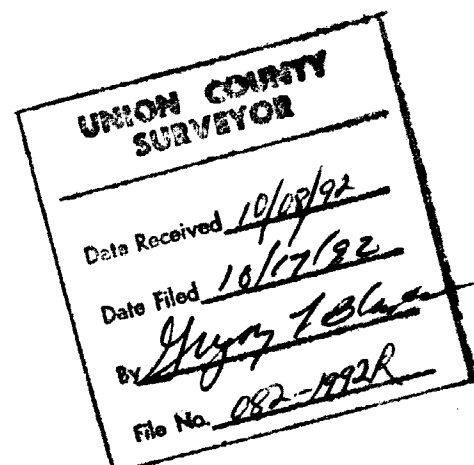 UNION COUNTY
SURVEYOR
Date Received 10/08/92
Date Filed 10/17/92
By
File No. 082-1992R